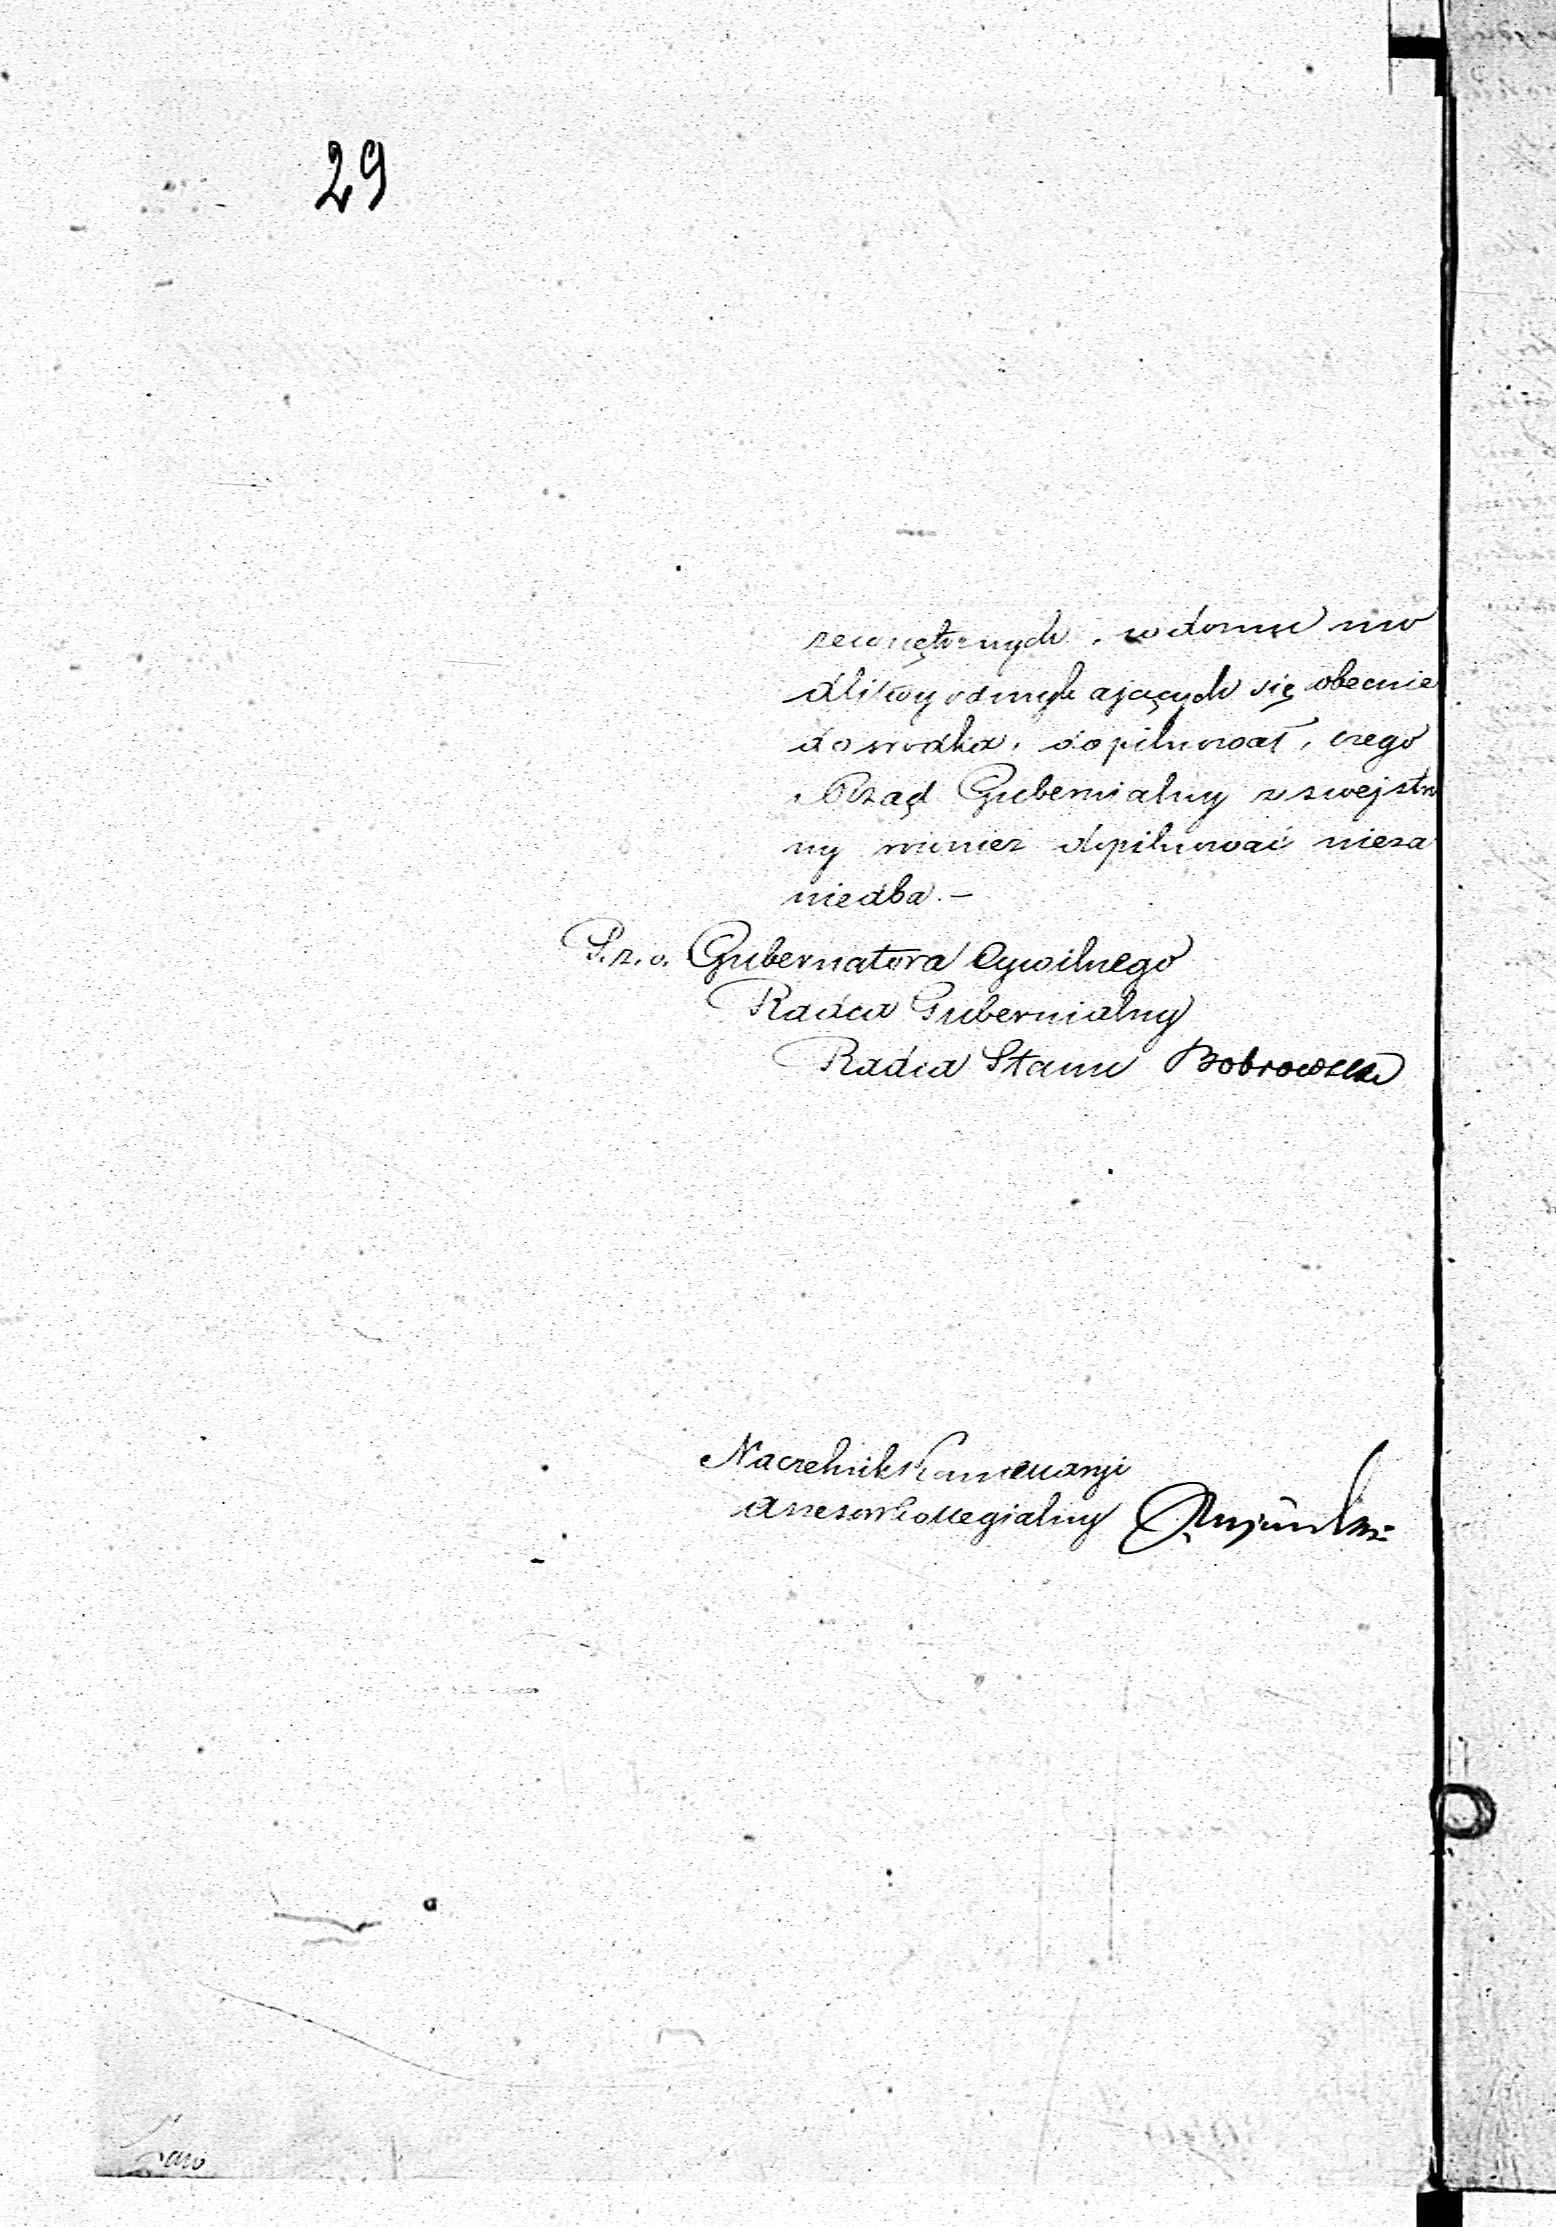 29
zewnętrznych, w domu mo
dlitwy odmykających się obecnie
do srodka, dopilnował, czego
Rząd Gubernialny z swej stro
ny równiez dopilnować nieza
niedba.—
P. z. o. Gubernatora Cywilnego
Radca Gubernialny
Radca Stanu Bobrowski
Naczelnik Kancellaryi
Assesor Kollegialny